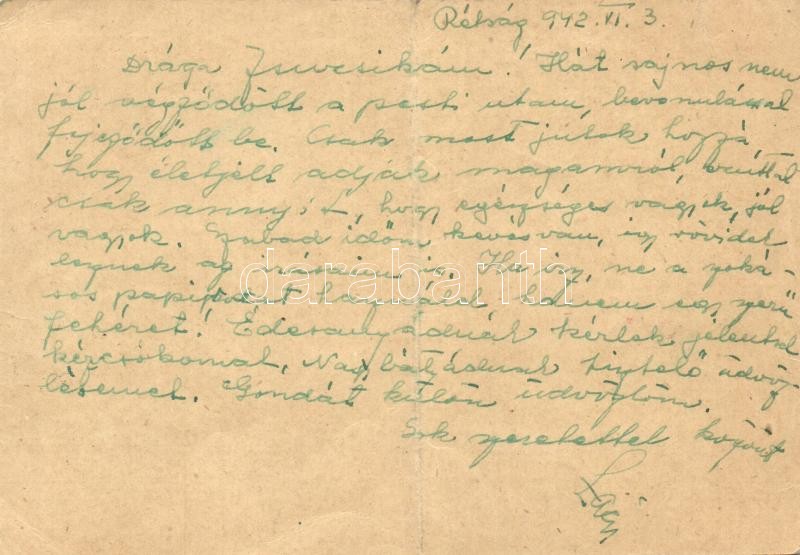 Rétság 942. VI. 3.
Drága Zsuzsikám! Hát sajnos nem
jól végződött a pesti utam, bevonulással
fejeződött be. Csak most jutok hozzá,
hogy életjelt adjak magamról, ezúttal
csak annyit, hogy egészséges vagyok, jól
vagyok. Szabad időm kevés van, így rövidek
lesznek az írásaim is. Ha írsz, ne a szoká-
sos papirost használd, hanem egyszerű
fehéret! Édesanyádnak kérlek jelentsd
kézcsókomat, Nagybátyádnak tisztelő üdvöz-
letemet. Gondát külön üdvözlöm.
Sok szeretettel köszönt
Laci
darabanth